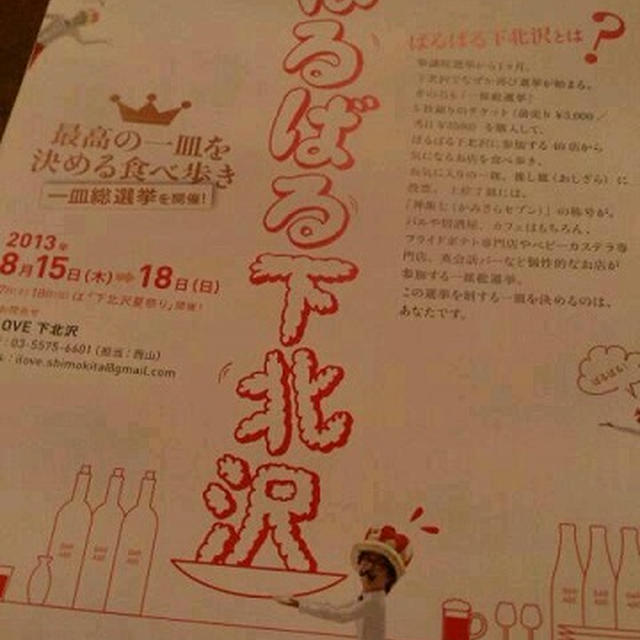 ばるばる下北沢
最高の一皿を
決める食べ歩き
一皿総選挙を開催!
2013年
8月15日(木)⇒18日(日)
は「下北沢夏祭り」開催!
LOVE 下北沢
: 03-5575-6601 (担当:西山)
: ilove.shimokita@gmail.com
ばるばる下北沢とは?
参議院選挙から1ヶ月、
下北沢でなぜか再び選挙が始まる。
その名も「一皿総選挙」
5枚綴りのチケット(前売り¥3,000/
当日¥3500)を購入して、
ばるばる下北沢に参加する
店から
気になるお店を食べ歩き、
お気に入りの一皿、推し皿(おしざら)に
投票。上位7皿には、
「神皿七(かみさらセブン)」の称号が。
バルや居酒屋、カフェはもちろん、
フライドポテト専門店やベビーカステラ専
門店、英会話バーなど個性的なお店が
参加する一皿総選挙。
この選挙を制する一皿を決めるのは、
あなたです。
ばるばる!